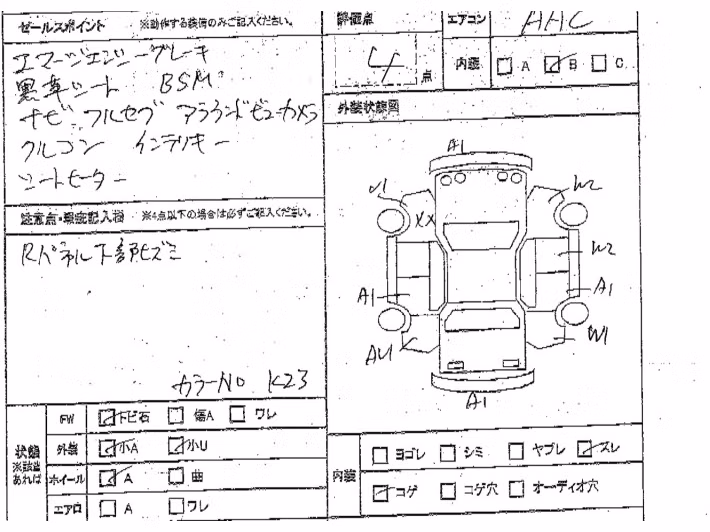 セールスポイント ※動作する装備のみご記入ください。
エマージェンシーブレーキ
黒革シート BSM
ナビ フルセグ アラウンドビューカメラ
クルコン インテリキー
シートヒーター
注意点・瑕疵記入欄 ※4点以下の場合は必ずご記入ください。
Rパネル下部ヒズミ
カラーNo K23
評価点 4点
エアコン AAC
内装 A B C
外装状態図
A1
U1 W2
XX
W2
A1 A1
AU1 W1
A1
状態 ※該当あれば
FW トビ石 傷A ワレ
外装 小A 小U
ホイール A 曲
エアロ A ワレ
内装 ヨゴレ シミ ヤブレ スレ
コゲ コゲ穴 オーディオ穴